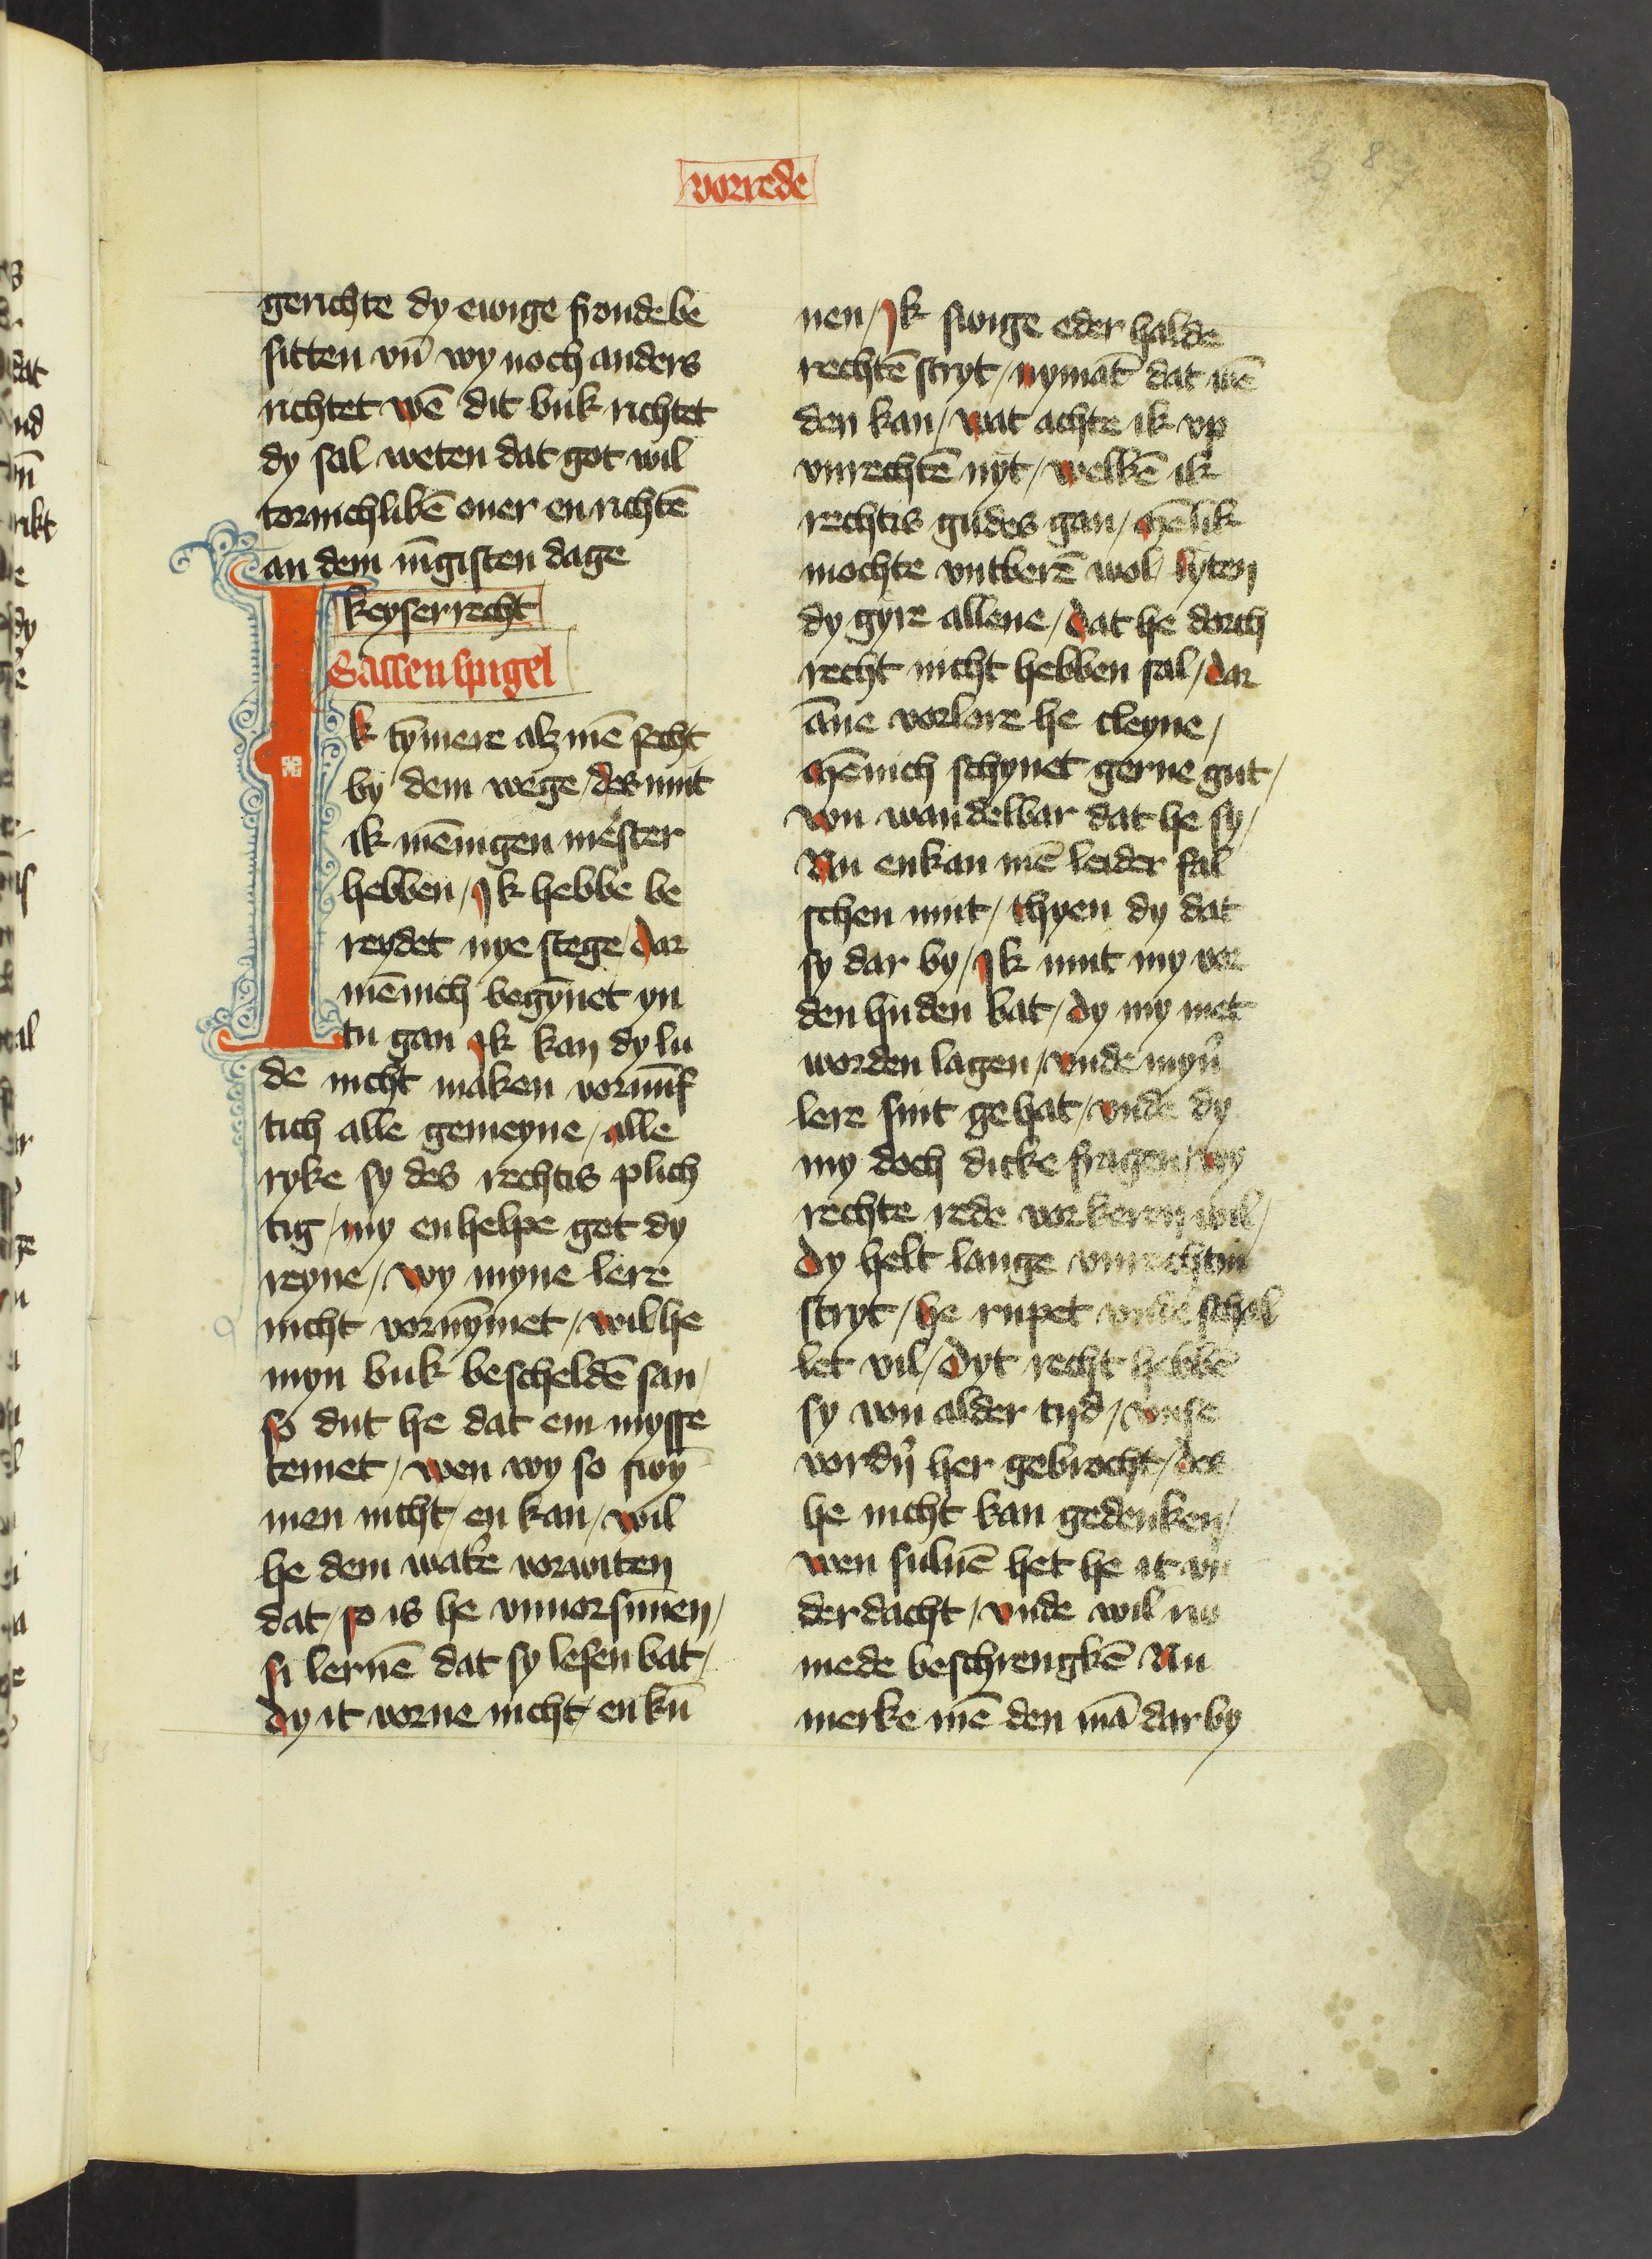 vorrede
8
gerichte dy ewige froude be
sitten vn̄ wy noch anders
richtet wē dit buk richtet
dy sal weten dat got wil
tornichlikē ouer en richtē
an dem iūgisten dage
keyserrecht
Sassenspigel
Ik tȳmere alz mē secht
by dem wege / des mut
ik mēnigen mester
hebben / Ik hebbe be
reydet nye stege / dar
mēnich begȳnet yn
tu gan Ik kan dy lu
de nicht maken vornūf
tich alle gemeyne / alle
ryke sy des rechtis plich
tig / my en helpe got dy
reyne / wy myne lere
nicht vornȳmet / wil he
myn buk bescheldē san /
so dut he dat em mysse
temet / wen wy so swȳ
men nicht / en kan / wil
he dem watere vorwiten
dat / so is he vnuorsūnen /
si lernē dat sy lesen bat /
dy it vorne nicht / en kū
nen / Ik swige eder halde
rechtē stryt / nymāt dat wē
den kan / wat achte ik vp
vnrechtē nyt / welkē ik
rechtis gudes gan / mēlik
mochte vntberē wol / syten
dy gyre allene / dat he dorch
recht nicht hebben sal / dar
āne vorlore he cleyne /
mēnich schynet gerne gut /
von wandelbar dat he sy /
Nu enkan mē leider fal
schen mut / thyen dy dat
sy dar by / Ik mut my vor
den huden bat / dy my met
worden lagen / vnde myner
lere sint gehat / vnde dy
my doch dicke fragen / wy
rechte rede vorkeren wil /
dy helt lange vnrechtin
stryt / he rupet vnde schel
let vil / dyt recht hebbē
sy von alder tyd / vnse
vordern her gebrocht / des
he nicht kan gedenken /
wen suluē het he it vn
derdacht / vnde wil uns
mede beschrengkē Nu
merke mē den mā dar by